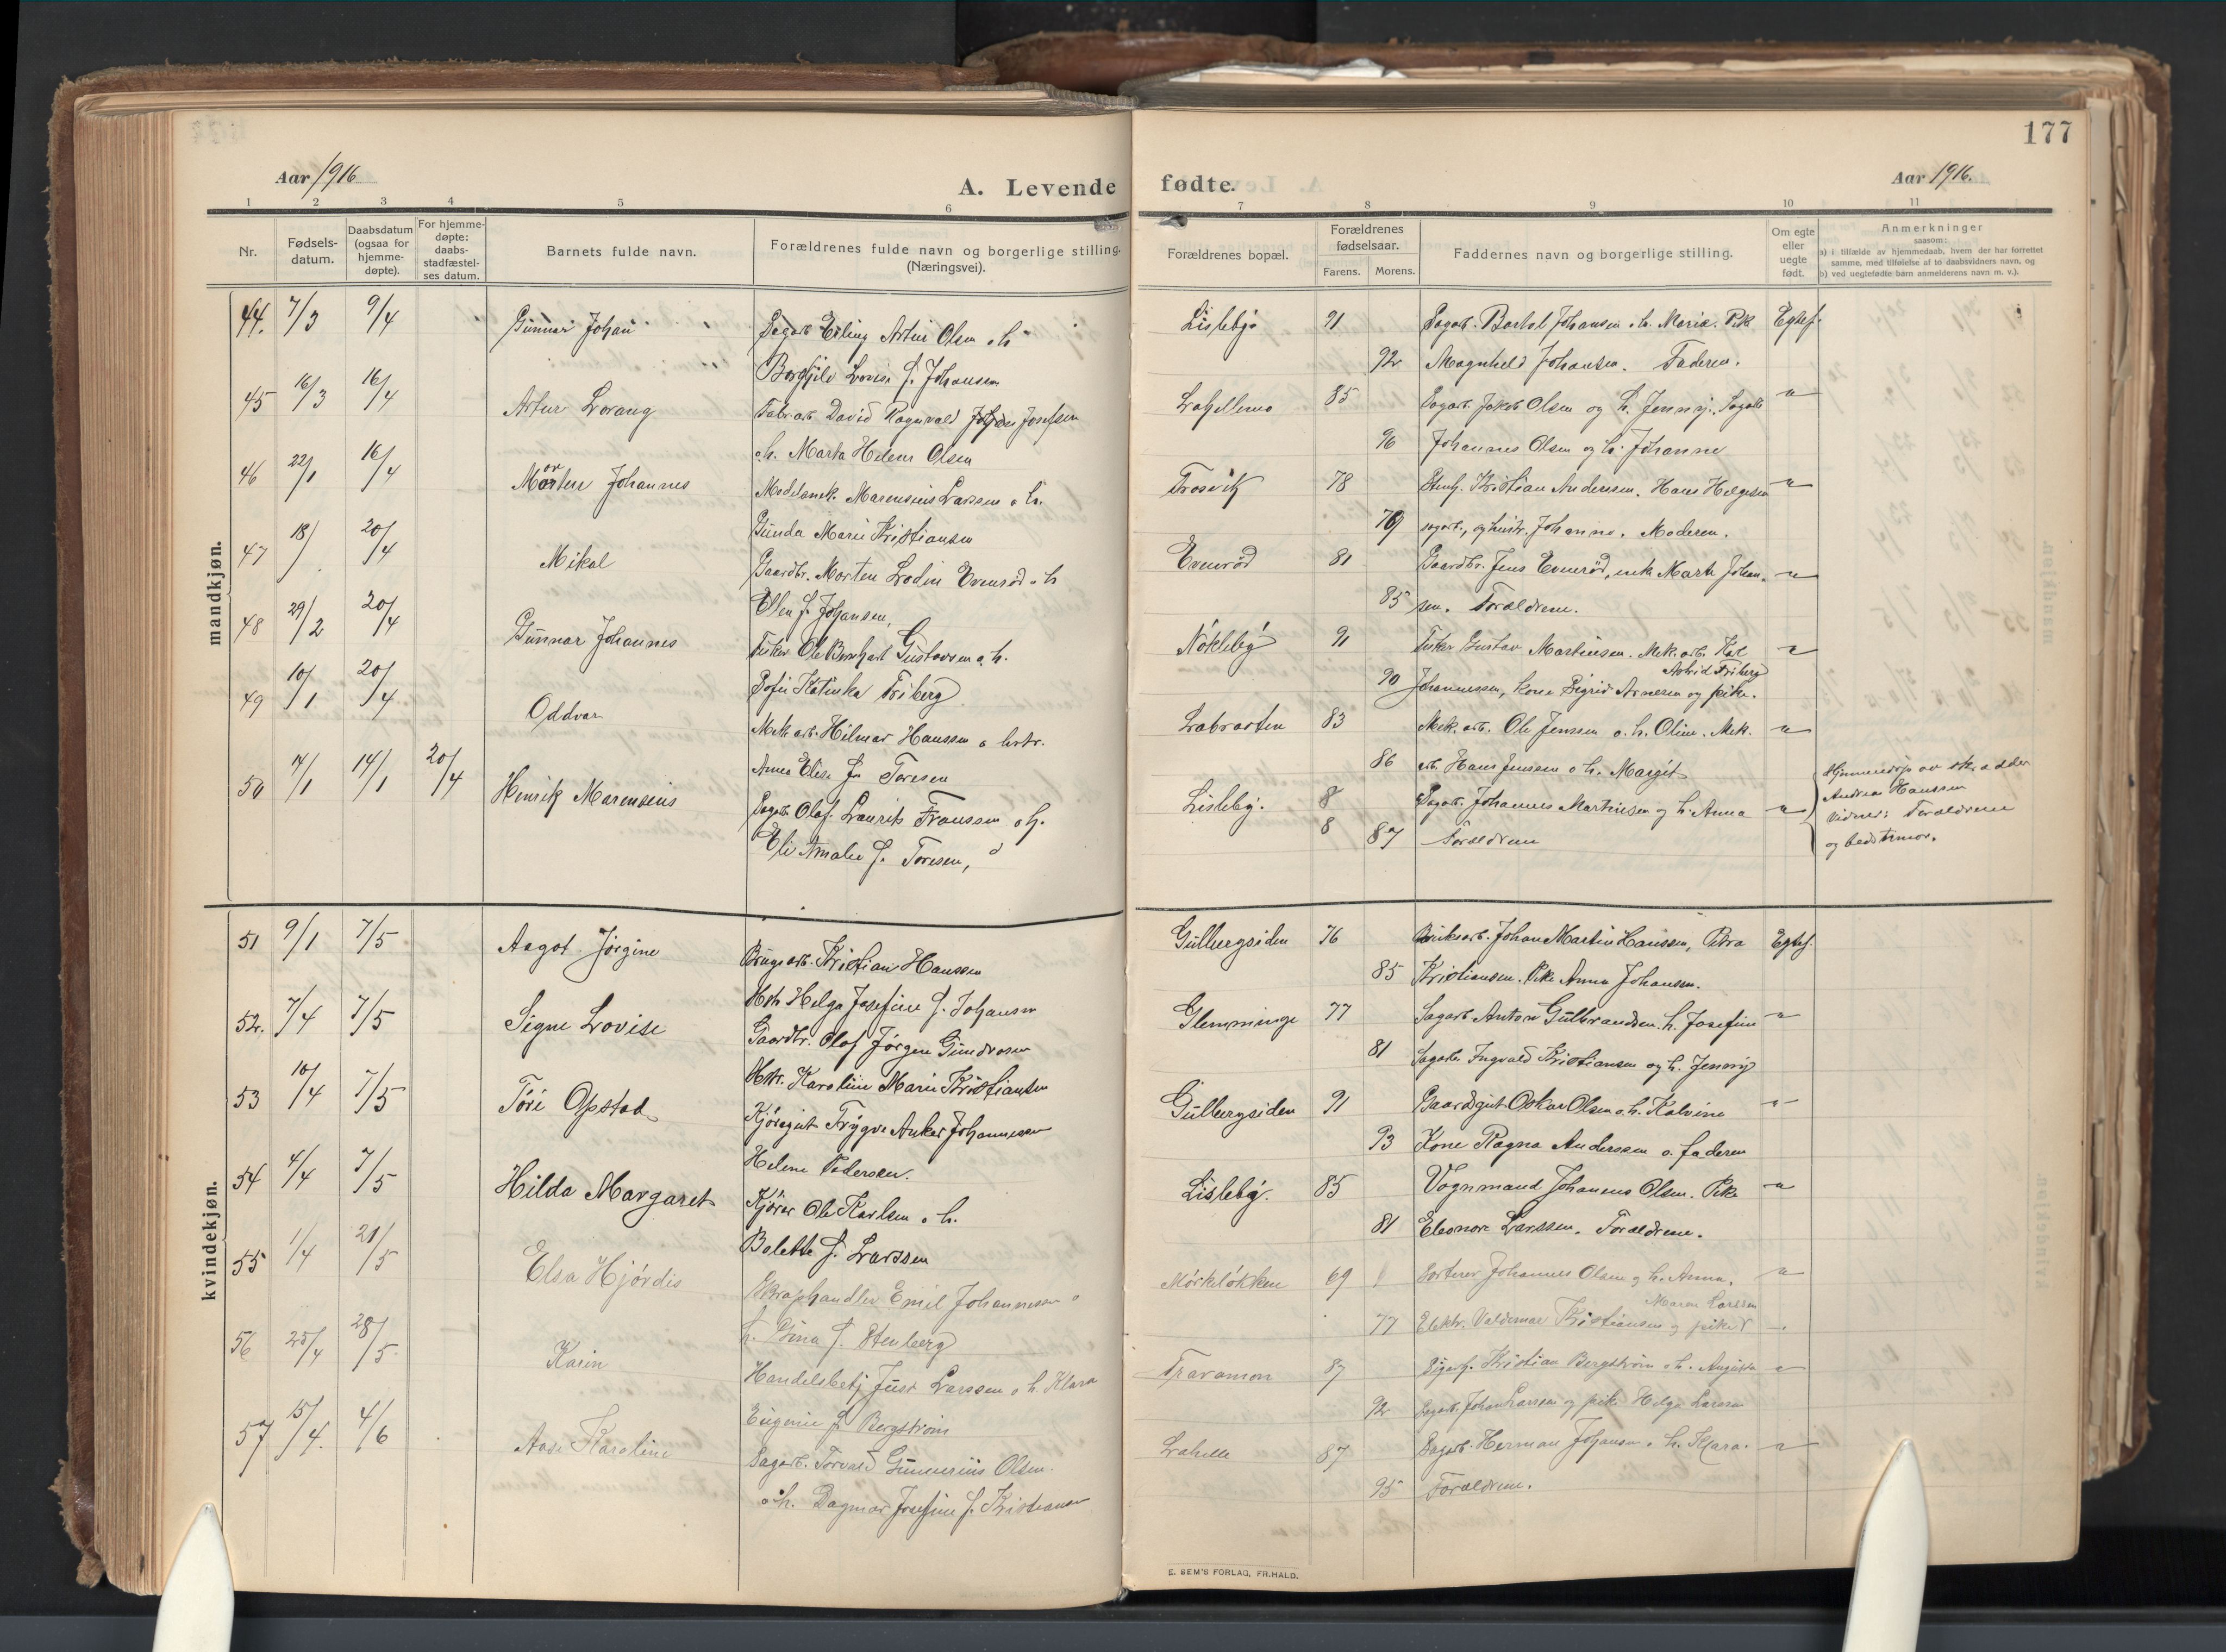 177
Aar 1916
A. Levende
fødte.
Aar 1916.
1 2 3 4 5 6
7 8 9 10 11
Nr.
Fødsels-
datum.
Daabsdatum
(ogsaa for
hjemme-
døpte).
For hjemme-
døpte:
daabs-
stadfæstel-
ses datum.
Barnets fulde navn.
Forældrenes fulde navn og borgerlige stilling.
(Næringsvei).
Forældrenes bopæl.
Forældrenes
fødselsaar.
Farens. Morens.
Faddernes navn og borgerlige stilling.
Om egte
eller
uegte
født.
Anmerkninger
saasom:
a) i tilfælde av hjemmedaab, hvem der har forrettet
samme, med tilføielse af to daabsvidners navn, og
b) ved uegtefødte barn anmelderens navn m. v.).
mandkjøn.
44. 7/3 9/4 Gunnar Johan
Sagarb. Erling Artur Olsen o h
Borghild Lovise f. Johansen
Lisleby 91
92
Sagarb. Bartol Johansen o. h. Marie. Pik
Magnhild Johansen. Faderen.
Egtef.
45 16/3 16/4 Artur Lorang
Fabrarb. David Ragnvald Josefsen
o. h. Marta Helene Olsen
Lahellemo 85
96
Sagarb. Jakob Olsen og h. Jenny. Sagarb
Johannes Olsen og h. Johanne
"
46 22/1 16/4 Morten Johannes
Modelsnek. Marensius Larssen o h.
Gunda Marie Kristiansen
Trosvik 78
79
Stenh. Kristian Anderssen. Hans Helgesen
sagarb., og hustr. Johanne. Moderen.
"
47 18/ 20/4 Mikal
Gaardbr. Morten Lodin Evenrød o h
Ellen f. Johansen,
Evenrød 81
85
Gaardbr. Jens Evenrød, enke Marte Johan-
sen. Forældrene.
"
48 29/2 20/4 Gunnar Johannes
Fisker Ole Bernhart Gustavsen o. h.
Sofie Katinka Friberg
Nøkleby 91
90
Fisker Gustav Martinsen. Mek. arb. Kal
Astrid Friberg
Johannessen, kone Sigrid Arnesen og pike.
"
49 10/1 20/4 Oddvar
Mek arb. Hilmar Hanssen o hstr.
Anna Elise f. Toresen
Labraaten 83
86
Mek. arb. Ole Jenssen o. h. Oline. Mek.
arb. Hans Jenssen o h. Margit
"
50 14/1 14/1 20/4 Henrik Marensius
Sagarb. Olaf Laurits Franssen o h.
Eli Amalie f. Toresen,
Lisleby. 8
8 87
Sagarb. Johannes Martinsen og h. Anna
Forældrene
"
Hjemmedøp av
Andrea Hanssen
Vidner: Forældrene
og bedstemor.
kvindekjøn.
51 9/1 7/5 Aagot Jørgine
Brugsarb. Kristian Hanssen
Hstr Helga Josefine f. Johansen
Gulbergsiden 76
85
Bruksarb. Johan Martin Hanssen, Petra
Kristiansen. Pike Anna Johansen.
Egtef.
52. 7/4 7/5 Signe Lovise
Gaardbr. Olaf Jørgen Gundrosen
Hstr. Karoline Marie Kristiansen
Glemminge 77
81
Sagarb. Anton Gulbrandsen. h. Josefine
Sagarb. Ingvald Kristiansen og h. Jenny
"
53 10/4 7/5 Tóri Opstad
Kjøregut Trygve Anker Johannessen
Helene Pedersen.
Gulbergsiden 91
93
Gaardgut Oskar Olsen o. h. Kalvine
Kone Ragna Anderssen o. faderen
"
54 4/4 7/5 Hilda Margaret
Kjører Ole Karlsen o h.
Bolette f. Larssen
Lisleby. 85
81
Vognmand Johannes Olsen. Pike
Eleonore Larssen. Forældrene.
"
55 1/4 21/5 Elsa Hjørdis
Skraphandler Emil Johannessen o
h. Gina f. Stenberg
Mørkeløkken 69
77
Sorterer Johannes Olsen og h. Anna.
Maren Karlsen
Elektr. Valdemar Kristiansen og pike
"
56 25/4 28/5 Karin
Handelsbetj Just Larssen o h. Klara
Eugenie f. Bergstrøm
Traramon 87
92
Kristian Bergstrøm o h. Augusta
Sagarb. Johan Larssen og pike Helga Larssen
"
57 15/4. 4/6 Aase Karoline
Sagarb. Torvald Gunnerius Olsen.
o. h. Dagmar Josefine f. Kristiansen
Lahelle 87
95
Sagarb. Herman Johansen o. h. Klara.
Forældrene.
"
E. SEM'S FORLAG, FR.HALD.